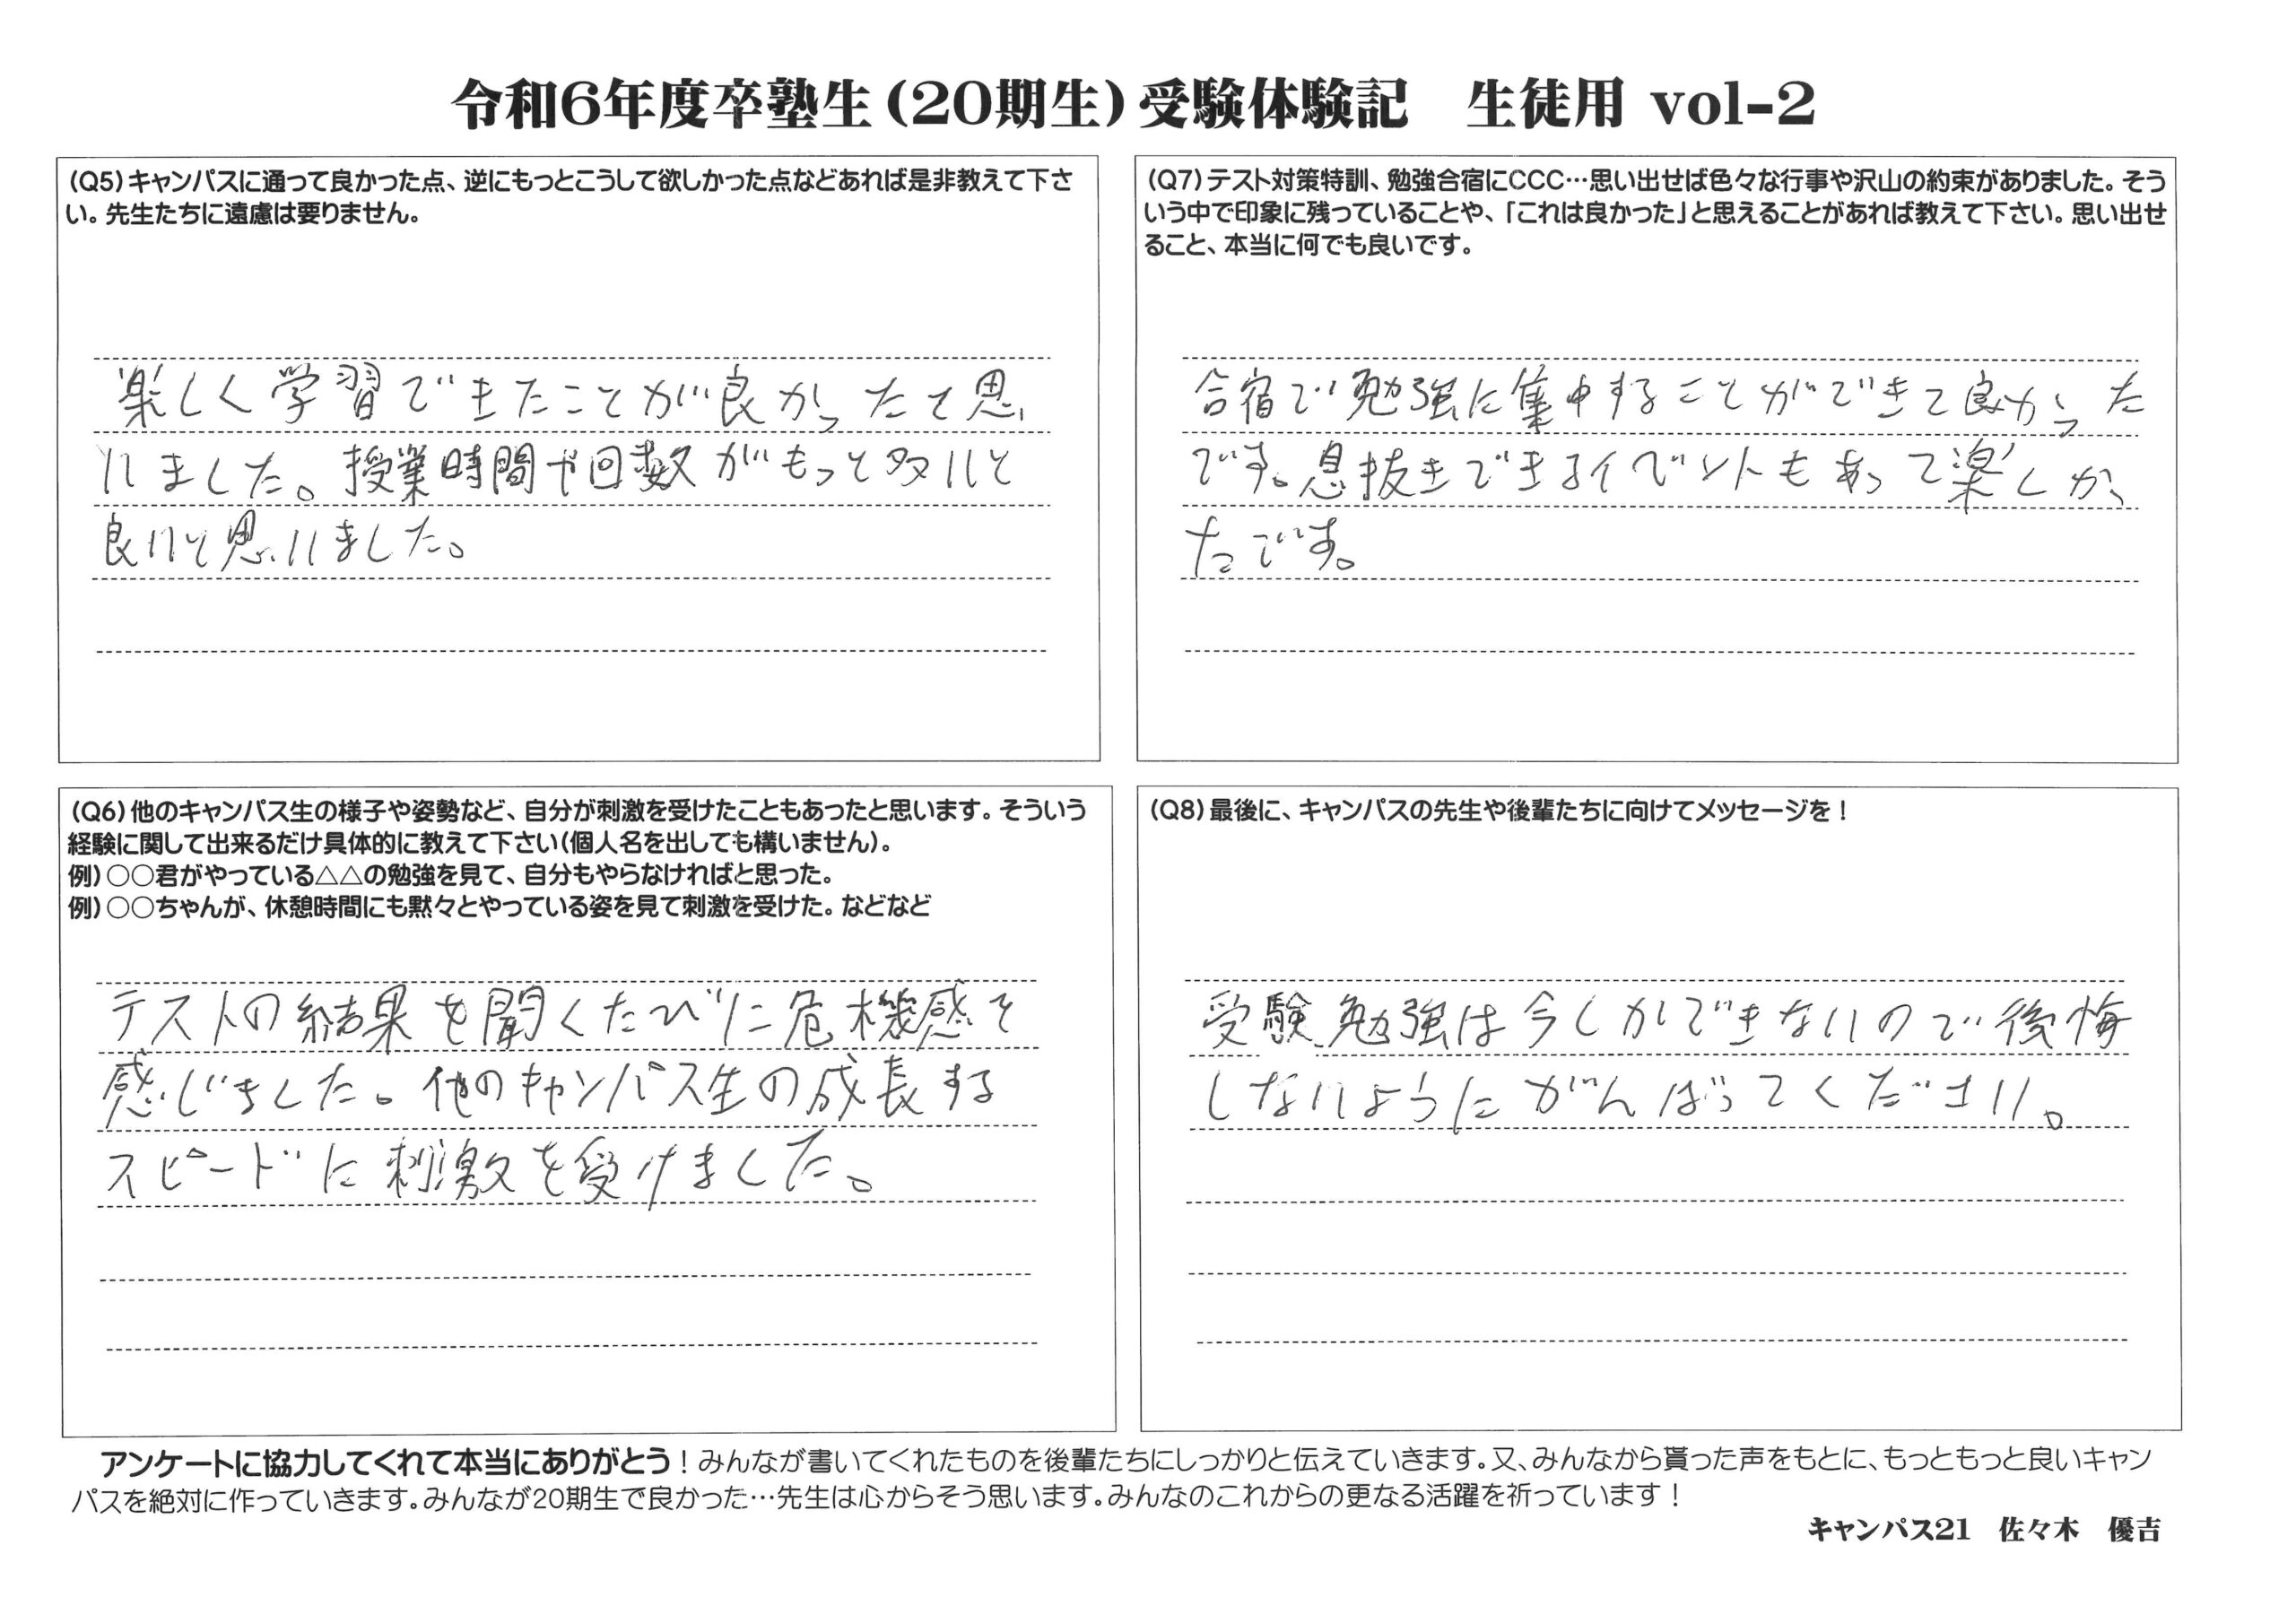 令和6年度卒塾生（20期生）受験体験記　生徒用 vol-2
（Q5）キャンパスに通って良かった点、逆にもっとこうして欲しかった点などあれば是非教えて下さ
い。先生たちに遠慮は要りません。
楽しく学習できたことが良かったと思
いました。授業時間や回数がもっと多いと
良いと思いました。
（Q6）他のキャンパス生の様子や姿勢など、自分が刺激を受けたこともあったと思います。そういう
経験に関して出来るだけ具体的に教えて下さい（個人名を出しても構いません）。
例）○○君がやっている△△の勉強を見て、自分もやらなければと思った。
例）○○ちゃんが、休憩時間にも黙々とやっている姿を見て刺激を受けた。などなど
テストの結果を聞くたびに危機感を
感じました。他のキャンパス生の成長する
スピードに刺激を受けました。
（Q7）テスト対策特訓、勉強合宿にCCC…思い出せば色々な行事や沢山の約束がありました。そう
いう中で印象に残っていることや、「これは良かった」と思えることがあれば教えて下さい。思い出せ
ること、本当に何でも良いです。
合宿で勉強に集中することができて良かった
です。息抜きできるイベントもあって楽しかっ
たです。
（Q8）最後に、キャンパスの先生や後輩たちに向けてメッセージを！
受験勉強は今しかできないので後悔
しないようにがんばってください。
アンケートに協力してくれて本当にありがとう！みんなが書いてくれたものを後輩たちにしっかりと伝えていきます。又、みんなから貰った声をもとに、もっともっと良いキャン
パスを絶対に作っていきます。みんなが20期生で良かった…先生は心からそう思います。みんなのこれからの更なる活躍を祈っています！
キャンパス21　佐々木　優吉